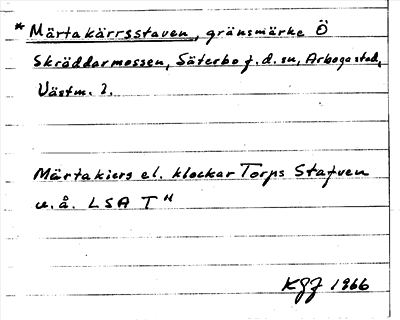 * Märtakärrsstaven, gränsmärke Ö
Skräddarmossen, Säterbo f.d. sn, Arboga stad,
Västm. l.
Märtakiers el. klockar Torps Stafven
u.å. LSA T"
KGJ 1966